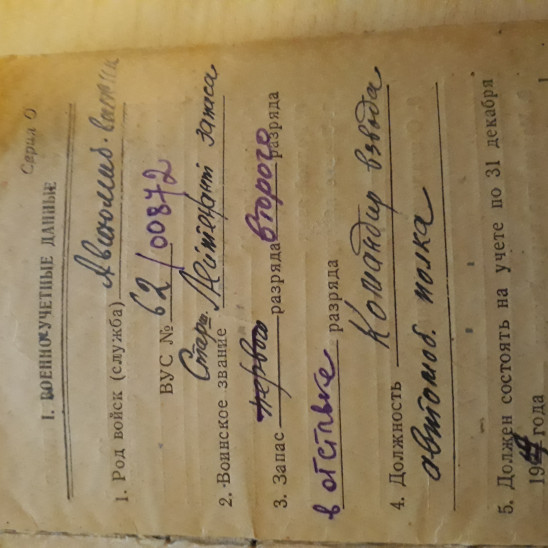 Серия О
I. ВОЕННО-УЧЕТНЫЕ ДАННЫЕ
1. Род войск (служба) Автомоб.
ВУС № 62/00872
Старш. Лейтенант запаса
2. Воинское звание
3. Запас первого разряда второго разряда
в отставке разряда
4. Должность Командир взвода
автомоб. полка
5. Должен состоять на учете по 31 декабря
19 года